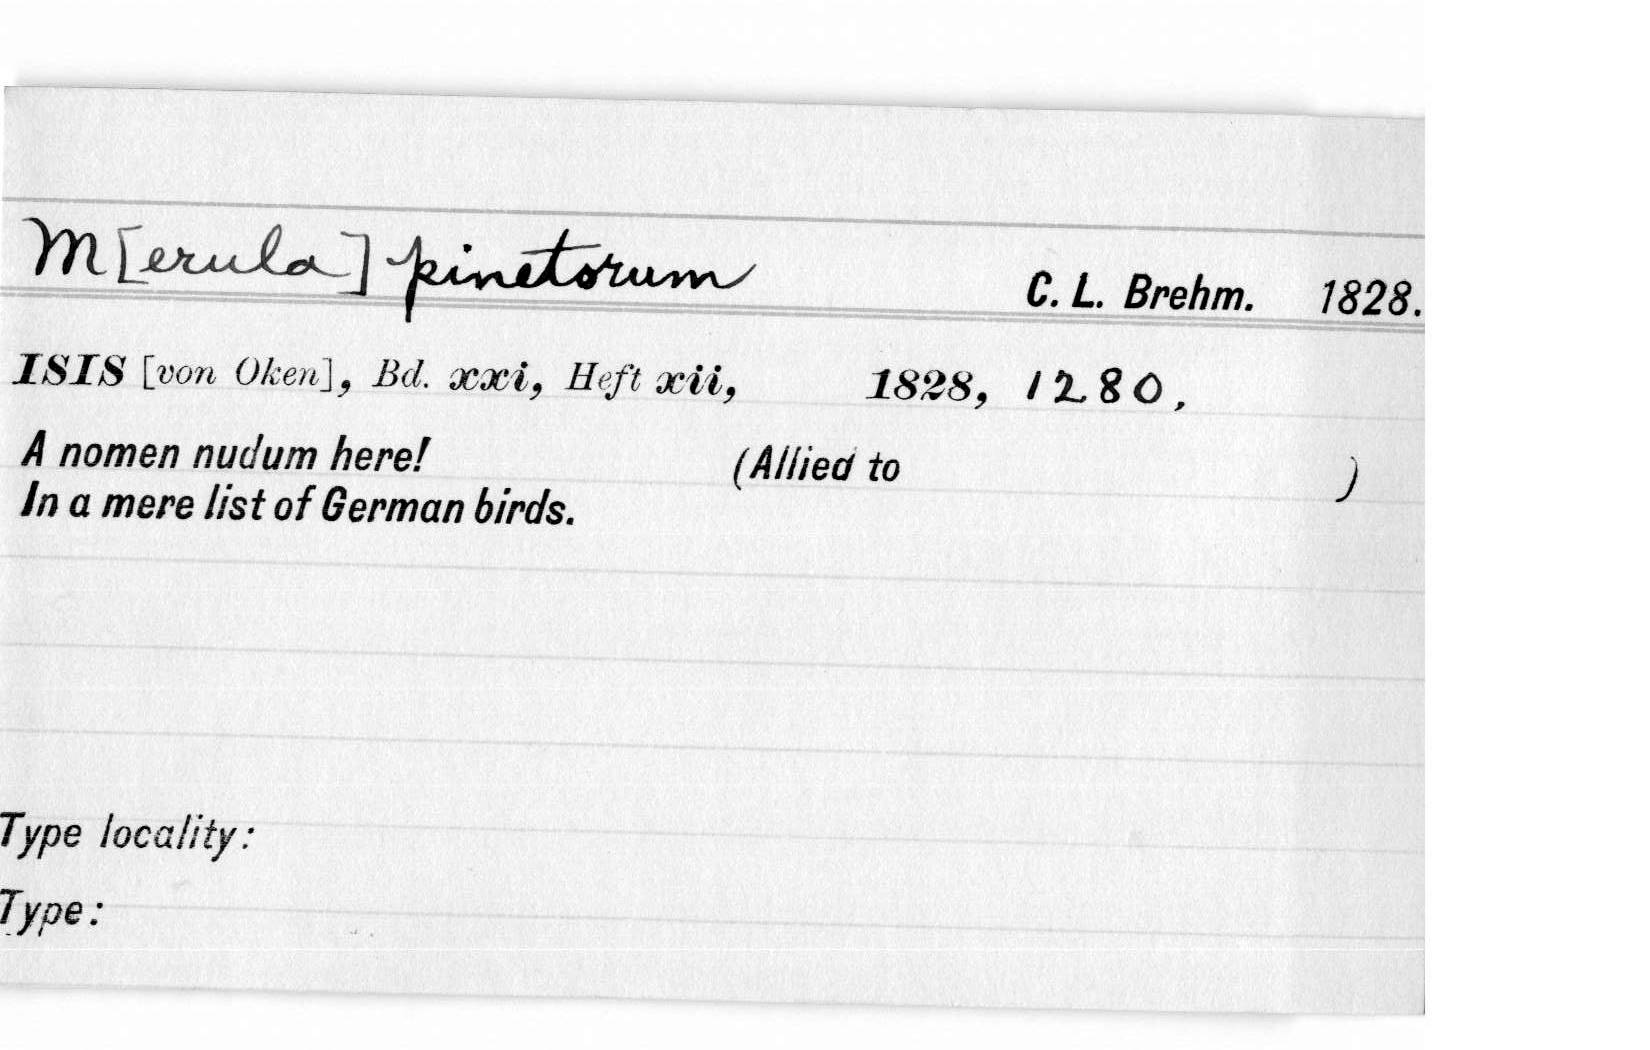 M[erula] pinetorum C. L. Brehm. 1828.
ISIS [von Oken], Bd. xxi, Heft xii, 1828, 1280,
A nomen nudum here! (Allied to )
In a mere list of German birds.
Type locality:
Type: